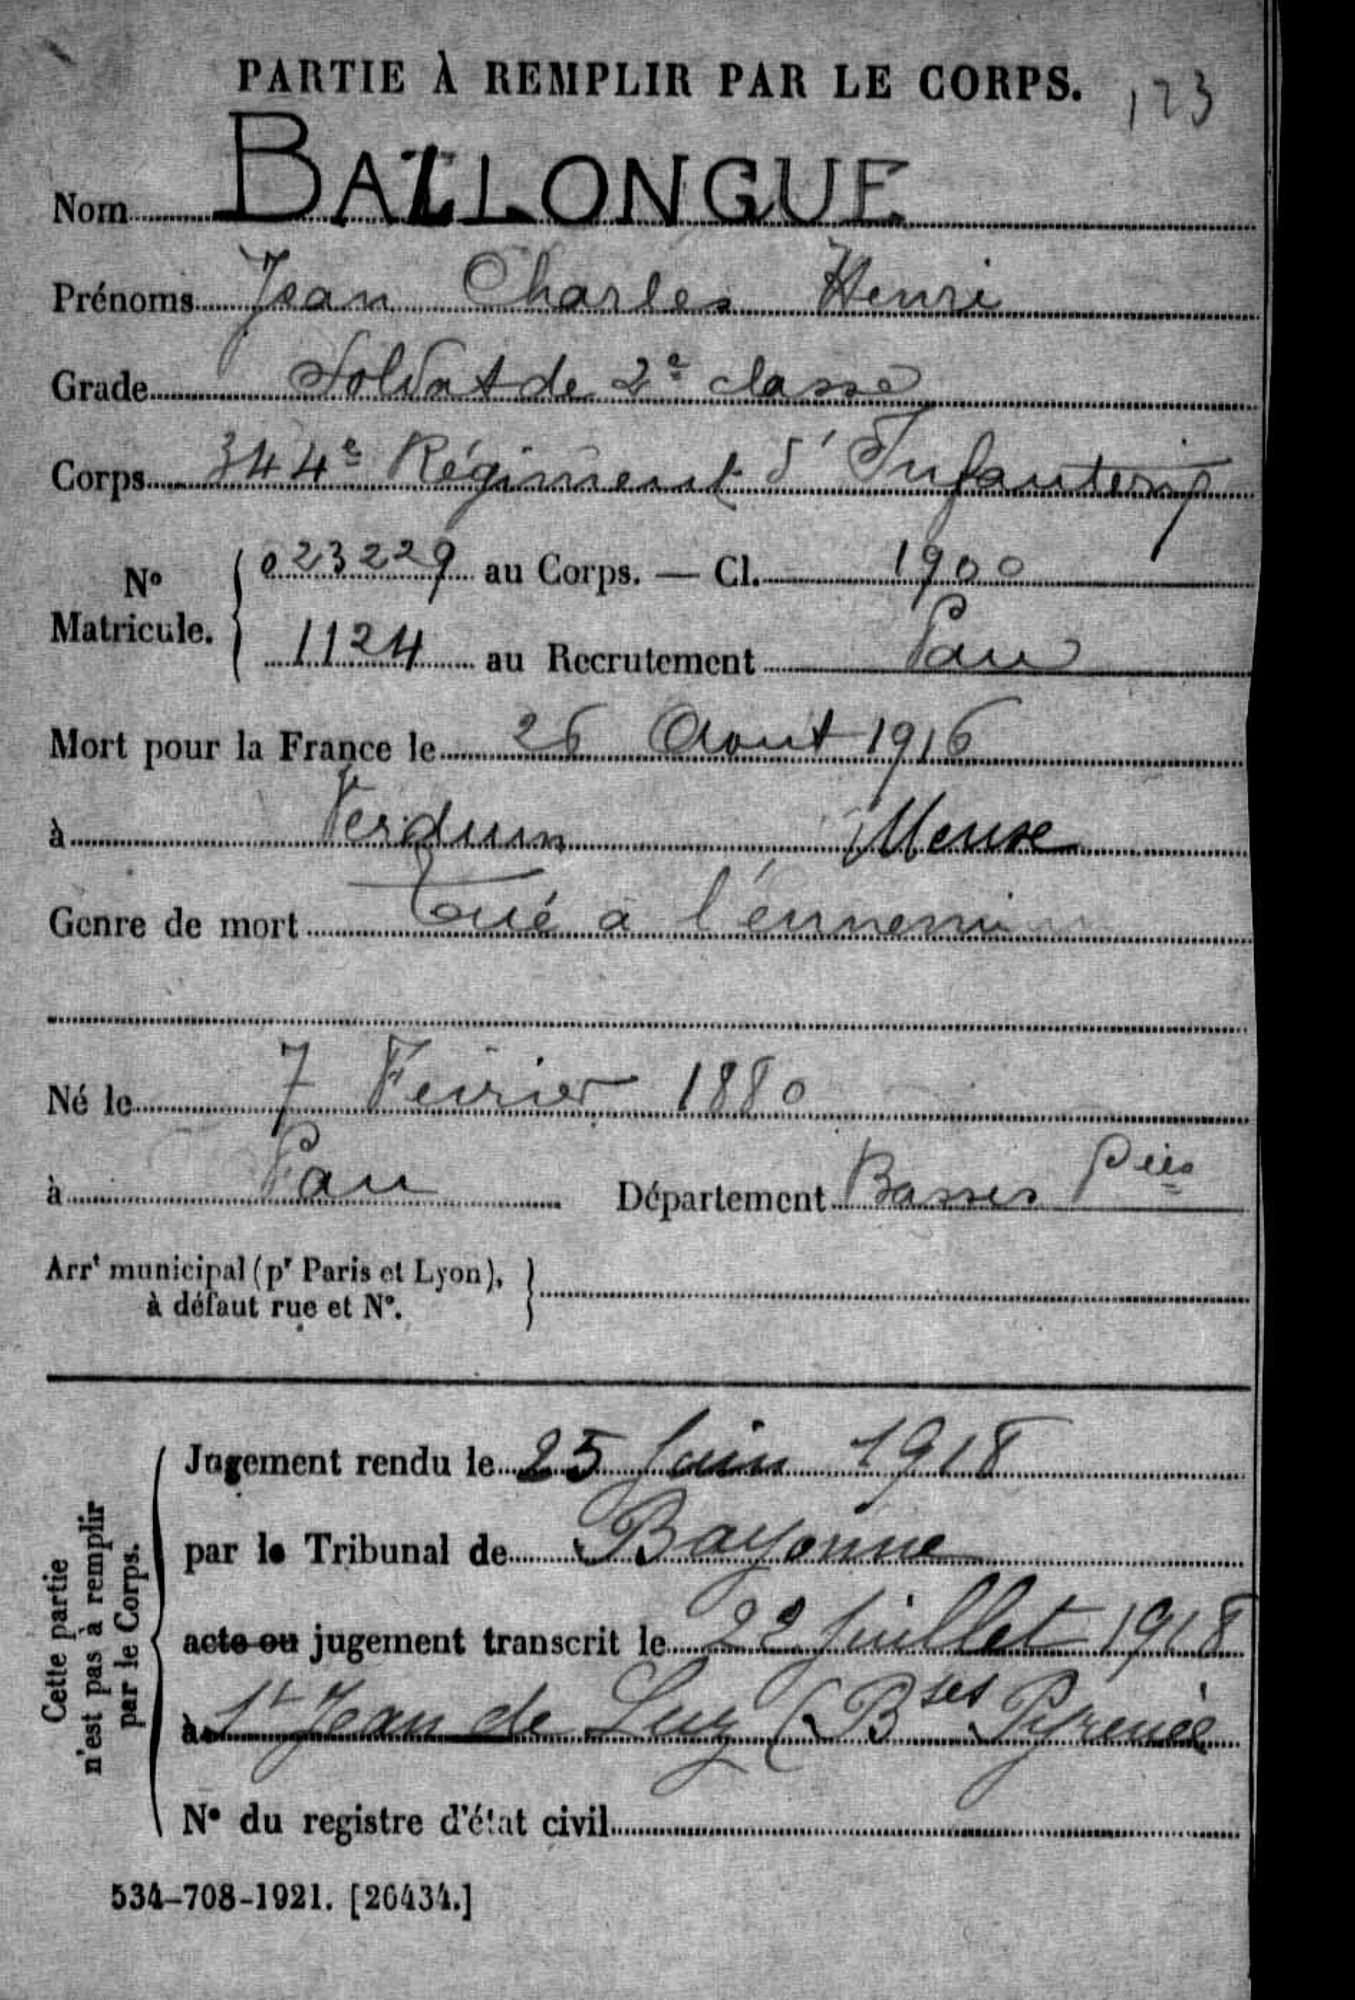 PARTIE À REMPLIR PAR LE CORPS. 123
Nom BALLONGUE
Prénoms Jean Charles Henri
Grade Soldat de 2e classe
Corps 344e Régiment d'Infanterie
No Matricule. { 023229 au Corps. — Cl. 1900
1124 au Recrutement Pau
Mort pour la France le 26 Aout 1916
à Verdun Meuse
Genre de mort Tué a l'énnemi
Né le 7 Fevrier 1880
à Pau Département Basses Pées
Arrt municipal (pr Paris et Lyon),
à défaut rue et No. }
Cette partie n'est pas à remplir par le Corps.
Jugement rendu le 25 Juin 1918
par le Tribunal de Bayonne
acte ou jugement transcrit le 22 Juillet 1918
à St Jean de Luz (Bses Pyrenées
No du registre d'état civil
534-708-1921. [26434.]